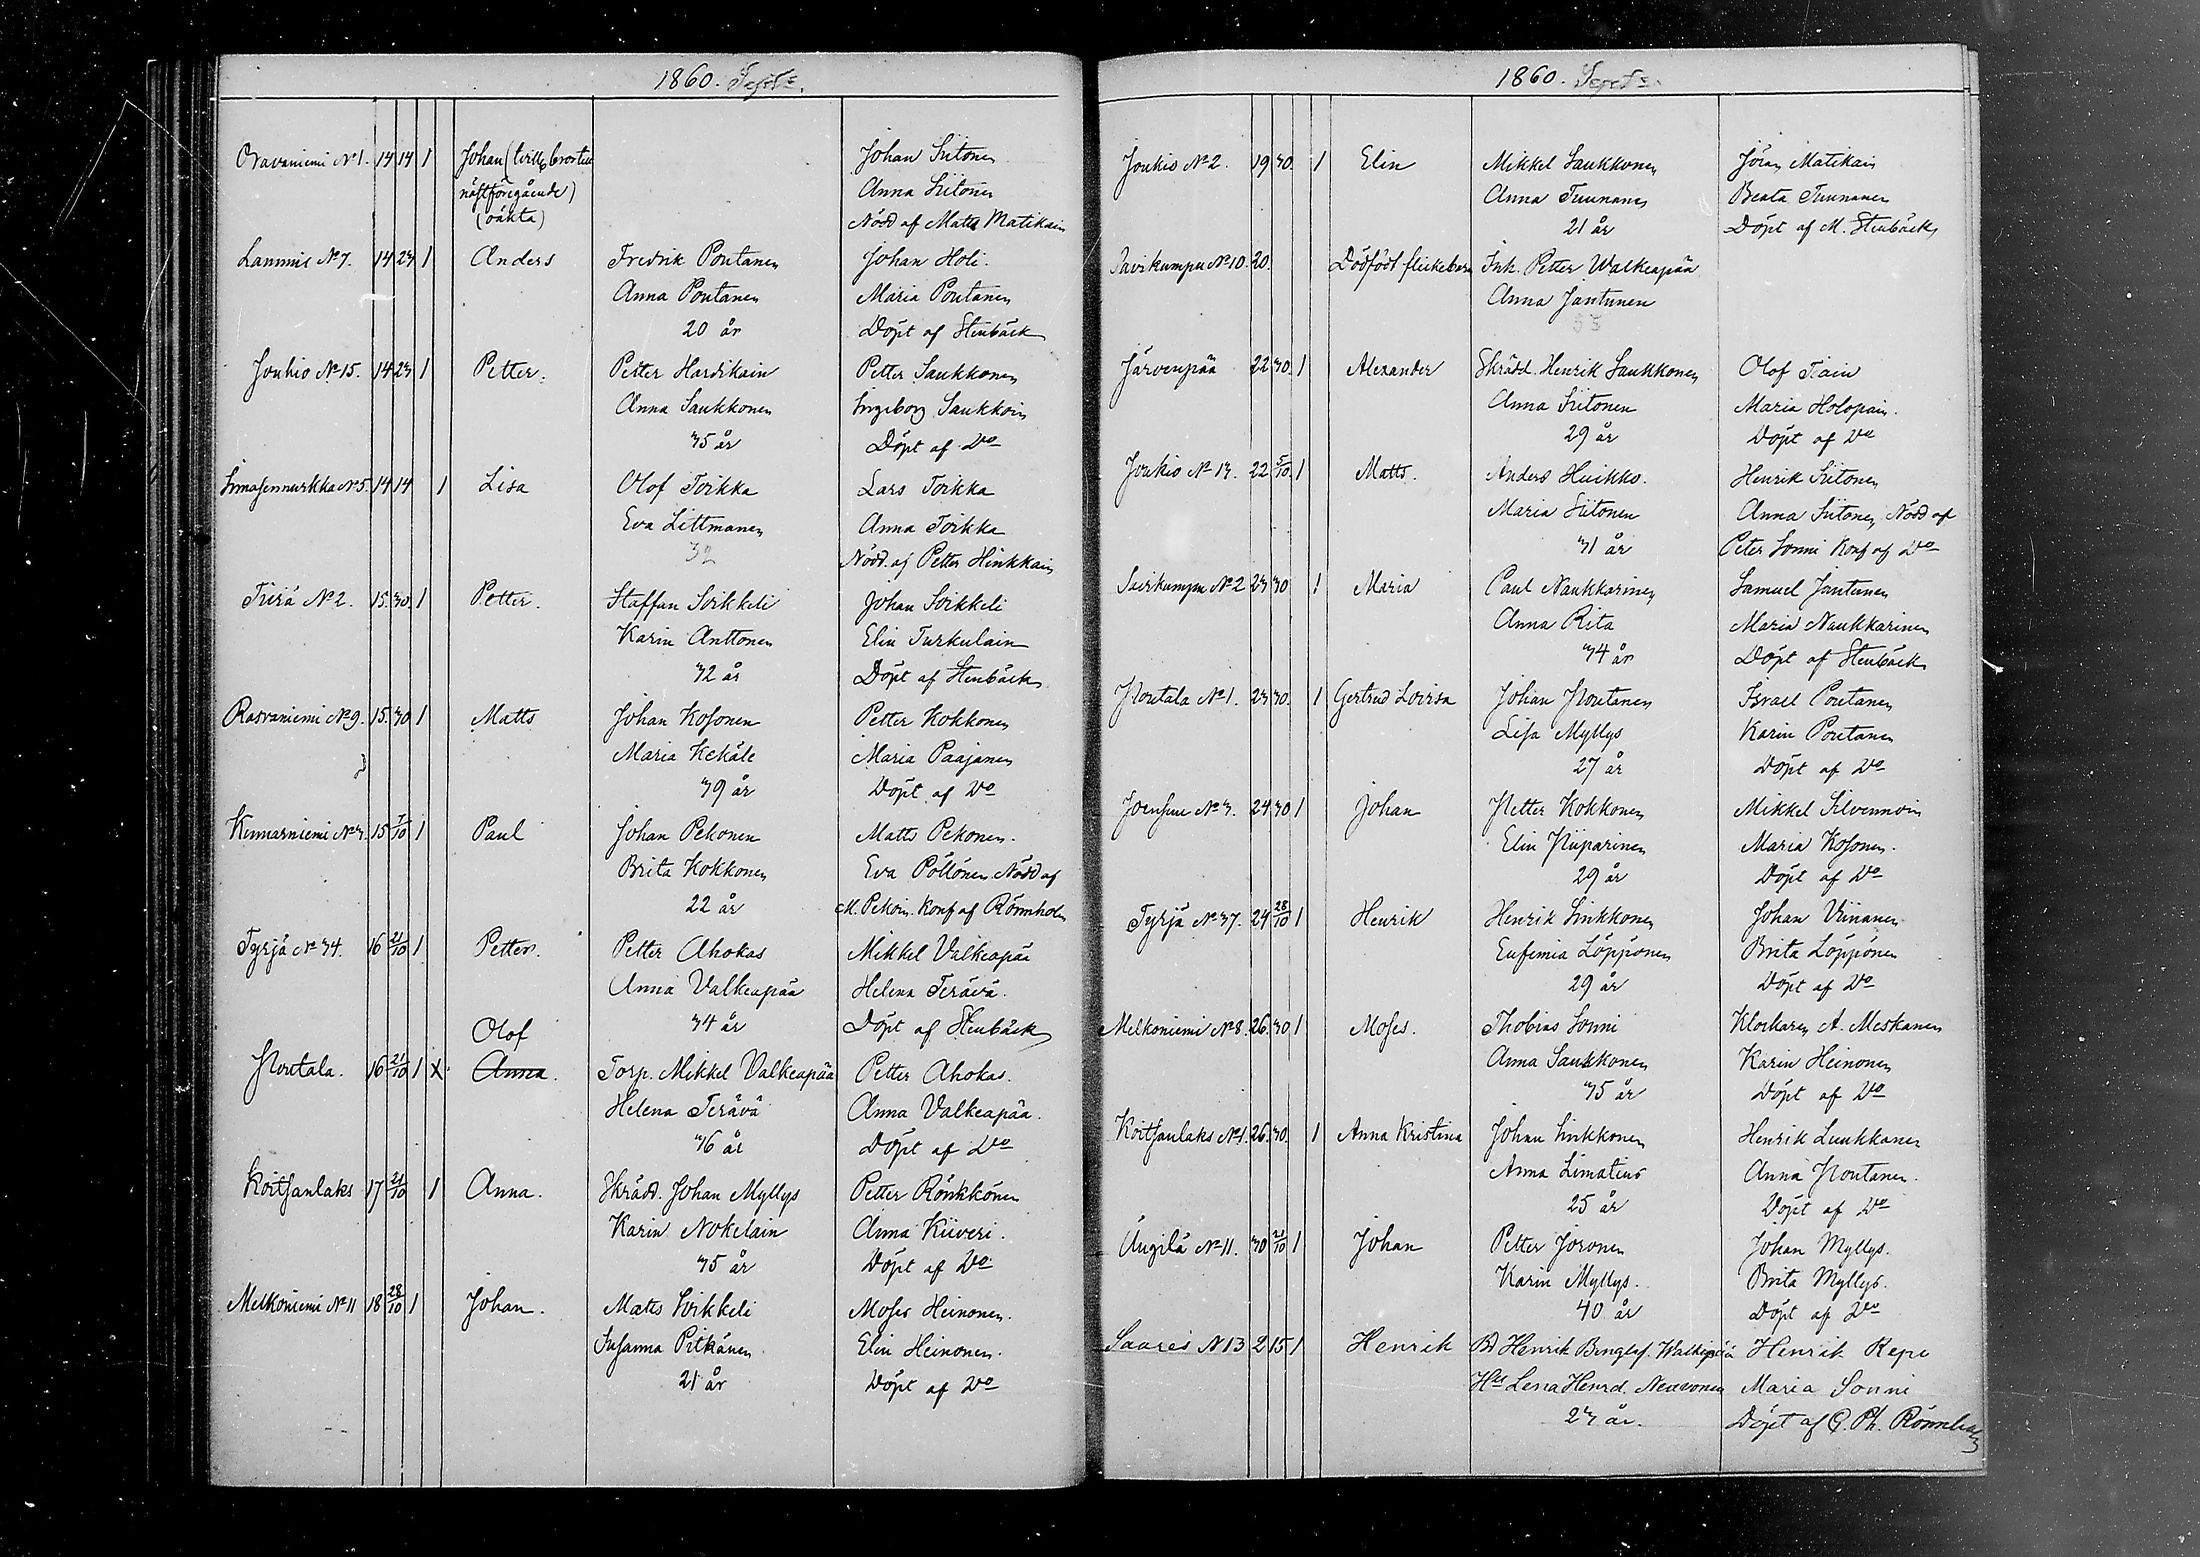 1860. Septr.
Oravaniemi No 1. 14 14 1 Johan (tvillg bror till Johan Siitonen
näſtföregående) Anna Siitonen
(oäkta) Nödd af Matts Matikain
Lammis No 7. 14 23 1 Anders Fredrik Poutanen Johan Holi.
Anna Poutanen Maria Poutanen
20 år Döpt af Stenbäck
Joukio No 15. 14 23 1 Petter. Petter Hardikain Petter Saukkonen
Anna Saukkonen Ingeborg Saukkoin
35 år Döpt af Do
14 14 1 Lisa Olof Toikka Lars Toikka
Eva Littmanen Anna Toikka
32 Nödd. af Petter Hinkkain
Tiirä No 2. 15. 30. 1 Petter. Staffan Soikkeli Johan Soikkeli
Karin Anttonen Elin Turkulain
32 år Döpt af Stenbäck
Rasvaniemi No 9. 15. 30 1 Matts Johan Koſonen Petter Kokkonen
Maria Kekäle Maria Paajanen
39 år Döpt af Do
Kinnarniemi No 3. 15 7/10 1 Paul Johan Pekonen Matts Pekonen.
Brita Kokkonen Eva Pöllönen. Nödd af
22 år M. Pekoin. Konf af Rönnholm
Tyrjä No 34. 16 21/10 1 Petter. Petter Ahokas Mikkel Valkeapää
Anna Valkeapää Helena Terävä.
34 år Döpt af Stenbäck
Olof
Poutala. 16 21/10 1 X Anna. Torp. Mikkel Valkeapää Petter Ahokas.
Helena Terävä Anna Valkeapää.
36 år Döpt af Do
Koitſanlaks 17 21/10 1 Anna. Skrädd. Johan Myllys Petter Rönkkönen
Karin Nokelain Anna Kiiveri.
35 år Döpt af Do
Melkoniemi No 11 18 28/10 1 Johan. Matts Soikkeli Moſes Heinonen.
Suſanna Pitkänen Elin Heinonen.
21 år Döpt af Do
1860. Septr.
Joukio No 2. 19 30. 1 Elin Mikkel Saukkonen Jöran Matikain
Anna Tuunanen Beata Tuunanen
21 år Döpt af M. Stenbäck
Savikumpu No 10. 20. Dödfödt flickebarn Inh. Petter Walkeapää
Anna Jantunen
33
Järvenpää 22 30. 1 Alexander Skrädd. Henrik Saukkonen Olof Tiain
Anna Siitonen Maria Holopain.
29 år Döpt af Do
Joukio No 13. 22 5/10 1 Matts. Anders Huikko. Henrik Siitonen
Maria Siitonen Anna Siitonen, Nödd af
31 år Peter Sonni Konf af Do
Savikumpu No 2 23 30 1 Maria Paul Naukkarinen Samuel Jantunen
Anna Rita Maria Naukkarinen
34 år Döpt af Stenbäck
Poutala No 1. 23 30. 1 Gertrud Lovisa Johan Poutanen Israel Poutanen
Liſa Myllys Karin Poutanen
27 år Döpt af Do
Joenſuu No 3. 24 30 1 Johan Petter Kokkonen Mikkel Silvennoin
Elin Piiparinen Maria Koſonen.
29 år Döpt af Do
Tyrjä No 37. 24 28/10 1 Henrik Henrik Sinkkonen Johan Viinanen
Eufimia Löppönen Brita Löppönen
29 år Döpt af Do
Melkoniemi No 8. 26. 30 1 Moſes. Thobias Sonni Klockaren A. Meskanen
Anna Saukkonen Karin Heinonen
35 år Döpt af Do
Koitſanlaks No 1. 26. 30. 1 Anna Kristina Johan Sinkkonen Henrik Luukkanen
Anna Limatius Anna Poutanen.
25 år Döpt af Do
Ängilä No 11. 30 21/10 1 Johan Petter Joronen Johan Myllys.
Karin Myllys. Brita Myllys.
40 år Döpt af Do
Saares N 13 2 15 1 Henrik Bd Henrik Bengtsf. Walkepää Henrik Repo
Hu Lena Henrd. Neuvonen Maria Sonni
23 år. Döpt af G. Ph. Rönnholm